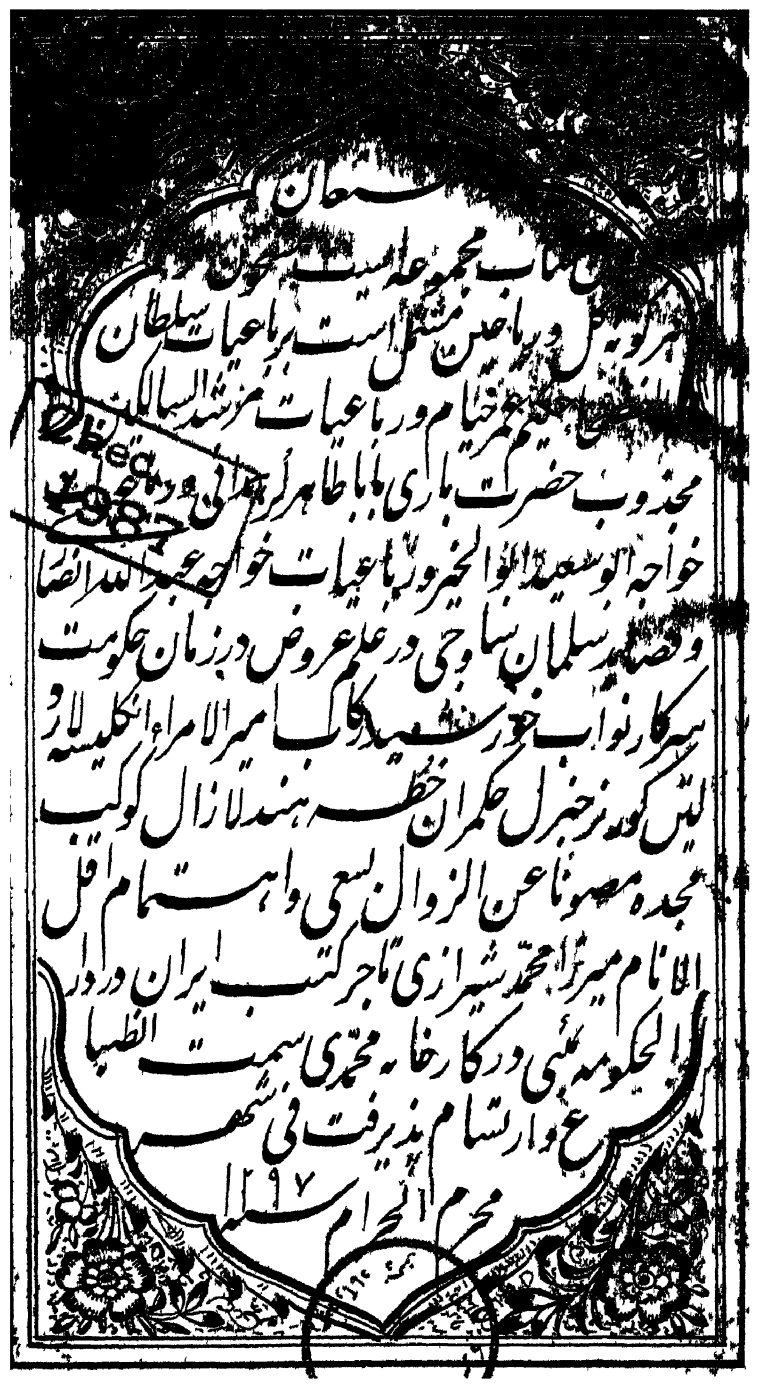 مستعان
کتاب مجموعه است مشحون
هرگونه گل و ریاحین مشتمل است بر رباعیات سلطان
حکیم عمر خیام و رباعیات مرشد السالکین
مجذوب حضرت باری بابا طاهر لر همدانی و رباعیات
خواجه ابو سعید ابوالخیر و رباعیات خواجه عبدالله انصا
و قصاید سلمان ساوجی در علم عروض در زمان حکومت
سرکار نواب خورشید رکاب امیر الامراء انگلیسه لارد
لیتن گورنر جنرل حکمران خطه هند لازال کوکب
مجده مصونا عن الزوال بسعی و اهتمام اقل
الانام میرزا محمد شیرازی تاجر کتب ایران در دار
الحکومه بمبئی در کارخانه محمدی سمت انطبا
ع و ارتسام پذیرفت فی شهر
محرم الحرام سنه ۱۲۹۷
Rec
1987